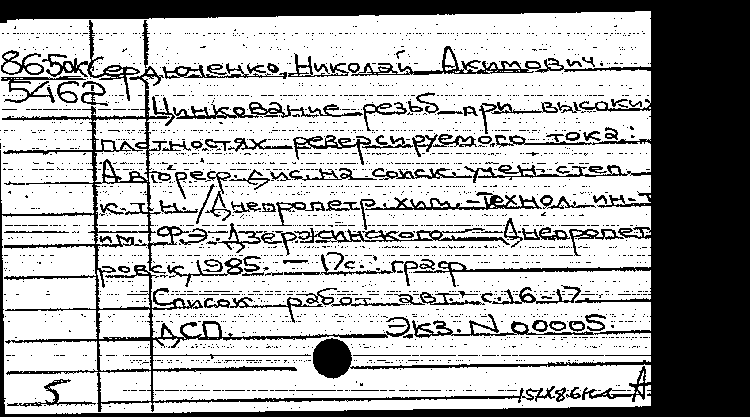 865ок Сердюченко, Николай Акимович.
5462
Цинкование резьб при высоких
плотностях реверсируемого тока:
Автореф. дис. на соиск. учен. степ.
к.т.н. / Днепропетр. хим.-технол. ин-т
им. Ф.Э. Дзержинского. — Днепропет-
ровск, 1985. — 17с.: граф
Список работ авт.: с.16-17.
ДСП. Экз. N 00005.
5 А